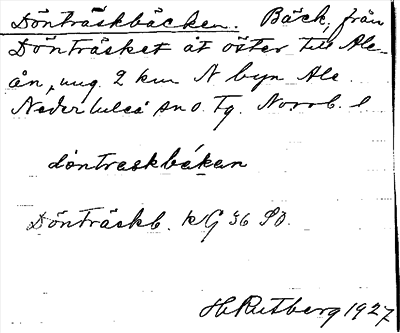 Dönträskbäcken. Bäck, från
Dönträsket åt öster till Ale-
ån, ung. 2 km N byn Ale.
Nederluleå sn o. tg. Norrb. l
döntraskbäkan
Dönträskb. kG 36 SO.
H Rutberg 1927